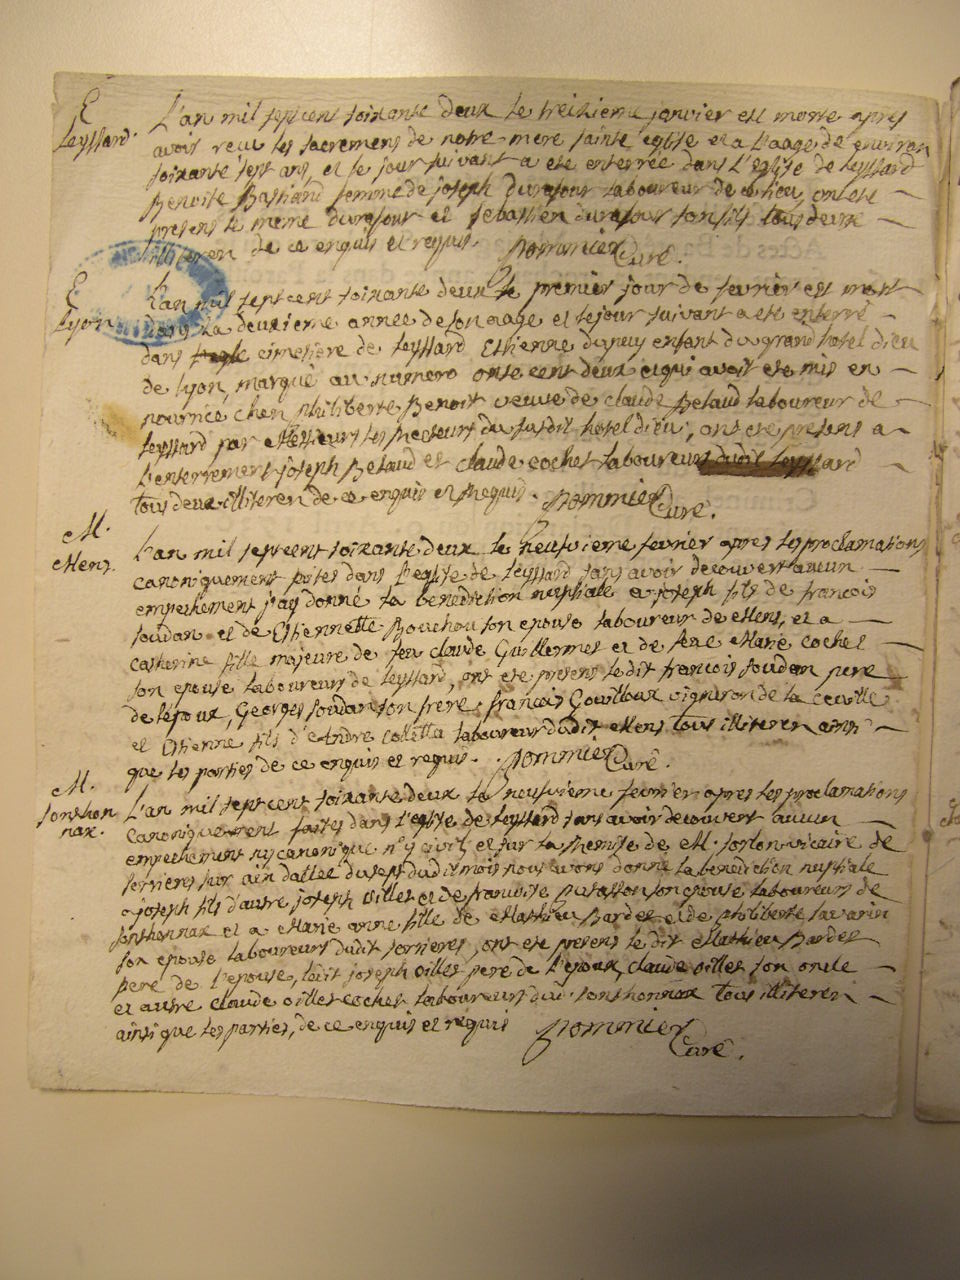 E
Leyssard.
L'an mil sept cent soixante deux le treizieme janvier est morte apres
avoir recu les sacremens de notre mere sainte eglise et a l'aage de environ
soixante sept ans, et le jour suivant a ete enterrée dans l'eglise de Leyssard
Benoite Bastiand femme de joseph durafour laboureur de lieu, ont ete
presens le meme durafour et sebastien durafour son fils tous deux
illiteren de ce enquis et requis. Pommier Curé.
E
Lyon
L'an mil sept cent soixante deux le premier jour de fevrier est mort
dans la deuxieme année de son aage et le jour suivant a ete enterré
dans cimetiere de Leyssard Ethienne dupuy enfant du grand hotel dieu
de Lyon, marqué au numero onse cent deux et qui avoit ete mis en
nourrice chen philiberte Benoit veuve de claude Belaud laboureur de
Leyssard par Messieurs les Recteurs du susdit hotel dieu, ont ete presens a
l'enterrement joseph Belaud et claude cochet laboureurs Leyssard
tous deux illiteren de ce enquis et requis. Pommier Curé.
M.
Mens.
L'an mil sept cent soixante deux le neufvieme fevrier apres les proclamations
canoniquement faites dans l'eglise de Leyssard sans avoir decouvert aucun
empechement j'ay donné la benediction nuptiale a joseph fils de francois
soudan et de Etiennette Bouchou son epouse laboureur de Mens, et a
Catherine fille majeure de feu claude Guillermet et de feue Marie cochet
son epouse laboureurs de Leyssard, ont ete presens le dit francois soudan pere
de l'epoux, Georges soudan son frere, francois vigneron de la
et Etienne fils d'André Colletta laboureur dudit Mens tous illiteren ainsi
que les parties de ce enquis et requis. Pommier Curé.
M.
Sonthon
nax.
L'an mil sept cent soixante deux le neufvieme fevrier apres les proclamations
Canoniquement faites dans l'eglise de Leyssard sans avoir decouvert aucun
empechement ny canonique n'y civil et sur la remise de M. vicaire de
serrieres sur ain dattée du sept dudit mois nous avons donné la benediction nuptiale
a joseph fils d'autre joseph oillet et de francoise son epouse laboureurs de
Sonthonnax et a Marie anne fille de Mathieu Bardet et de philiberte savarin
son epouse laboureurs dudit serrieres, ont ete presens le dit Mathieu Bardet
pere de l'epouse, ledit joseph oillet pere de l'epoux, claude oillet son oncle
et autre claude oillet cochet laboureurs dud. sonthonnax tous illiteren
ainsi que les parties, de ce enquis et requis Pommier
Curé.